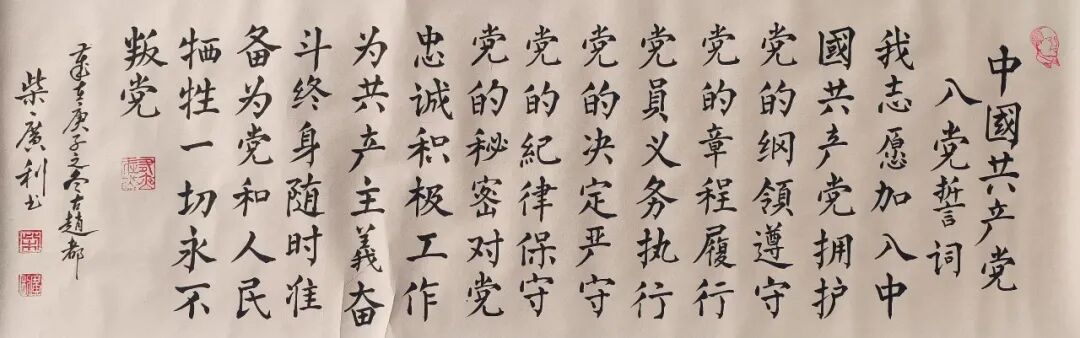 中國共产党
入党誓词
我志愿加入中
國共产党拥护
党的纲領遵守
党的章程履行
党員义务执行
党的决定严守
党的紀律保守
党的秘密对党
忠诚积极工作
为共产主義奋
斗终身随时准
备为党和人民
牺牲一切永不
叛党
歲在庚子之冬古趙都
柴廣利书